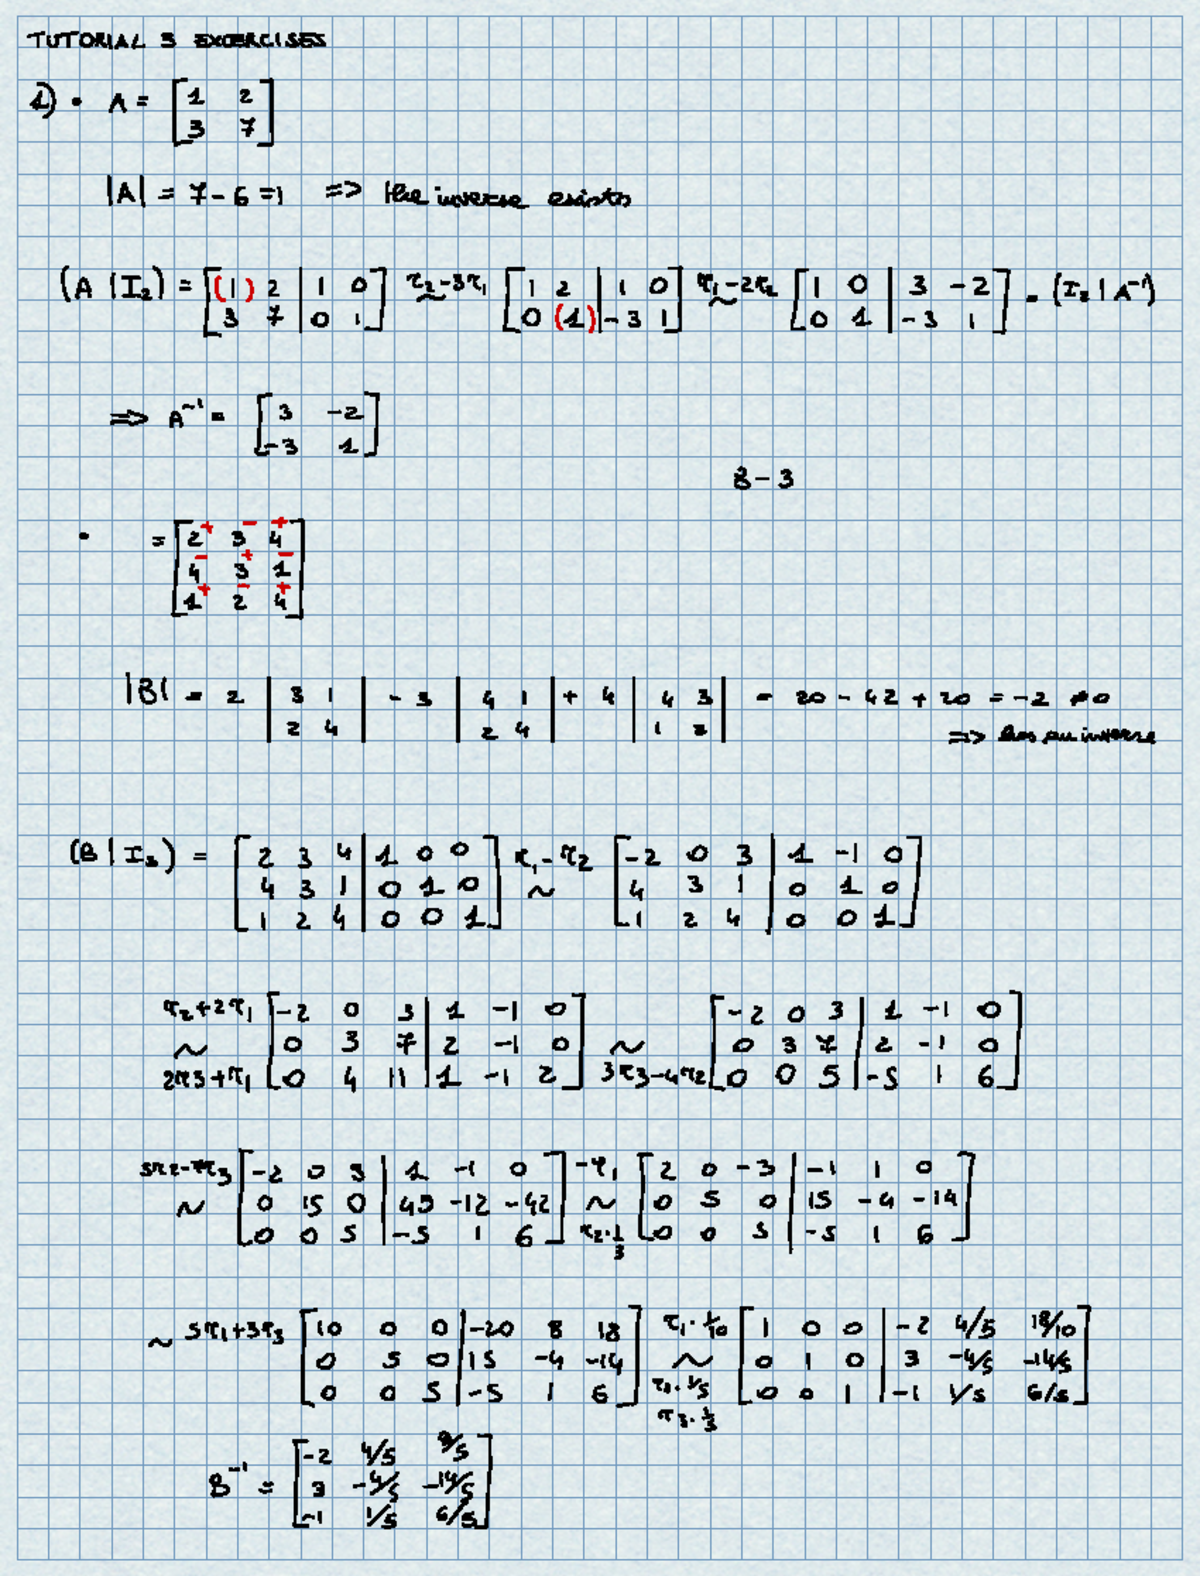 TUTORIAL 3 EXCERCISES
1) • A = [1 2
3 7]
|A| = 7 - 6 = 1 => the inverse exists
(A | I₂) = [(1) 2 | 1 0
3 7 | 0 1] r₂-3r₁ ~ [1 2 | 1 0
0 (1) | -3 1] r₁-2r₂ ~ [1 0 | 3 -2
0 1 | -3 1] = (I₂ | A⁻¹)
=> A⁻¹ = [3 -2
-3 1]
8 - 3
• = [2⁺ 3⁻ 4⁺
4⁻ 3⁺ 1⁻
1⁺ 2⁻ 4⁺]
|B| = 2 |3 1
2 4| - 3 |4 1
2 4| + 4 |4 3
1 2| = 20 - 42 + 20 = -2 ≠0
=> has an inverse
(B | I₃) = [2 3 4 | 1 0 0
4 3 1 | 0 1 0
1 2 4 | 0 0 1] r₁-r₂ ~ [-2 0 3 | 1 -1 0
4 3 1 | 0 1 0
1 2 4 | 0 0 1]
r₂+2r₁ ~ 2r3+r₁ [-2 0 3 | 1 -1 0
0 3 7 | 2 -1 0
0 4 11 | 1 -1 2] ~ 3r₃-4r₂ [-2 0 3 | 1 -1 0
0 3 7 | 2 -1 0
0 0 5 | -5 1 6]
5r₂-7r₃ ~ [-2 0 3 | 1 -1 0
0 15 0 | 45 -12 -42
0 0 5 | -5 1 6] -r₁ ~ r₂·1/3 [2 0 -3 | -1 1 0
0 5 0 | 15 -4 -14
0 0 5 | -5 1 6]
~ 5r₁+3r₃ [10 0 0 | -20 8 18
0 5 0 | 15 -4 -14
0 0 5 | -5 1 6] r₁·1/10 ~ r₂·1/5 r₃·1/5 [1 0 0 | -2 4/5 18/10
0 1 0 | 3 -4/5 -14/5
0 0 1 | -1 1/5 6/5]
B⁻¹ = [-2 4/5 9/5
3 -4/5 -14/5
-1 1/5 6/5]